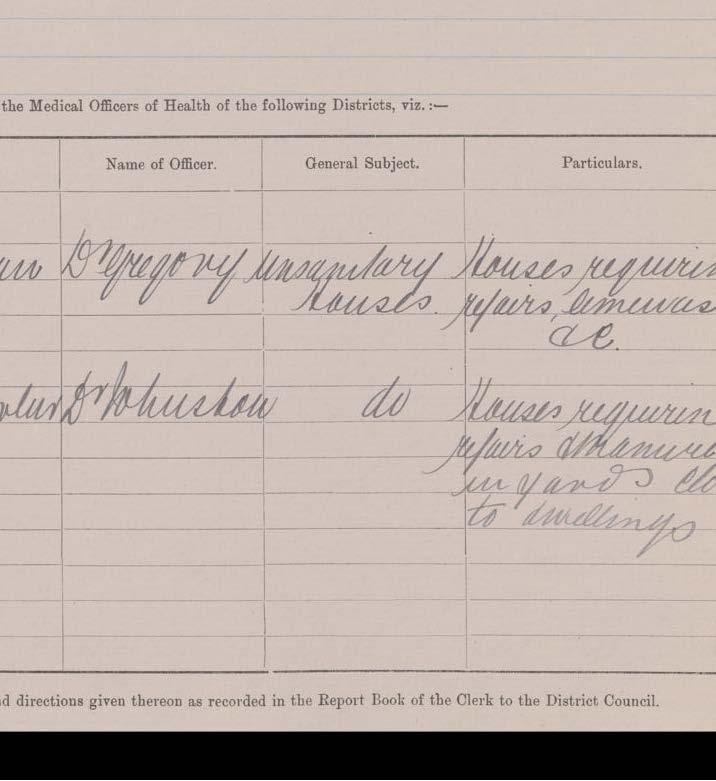 the Medical Officers of Health of the following Districts, viz. :—
Name of Officer. General Subject. Particulars.
Dr Gregory Unsanitary Houses requirin
houses. repairs, limewas
&c.
Dr Johnston do Houses requirin
repairs & manure
in yards clo
to dwellings
d directions given thereon as recorded in the Report Book of the Clerk to the District Council.